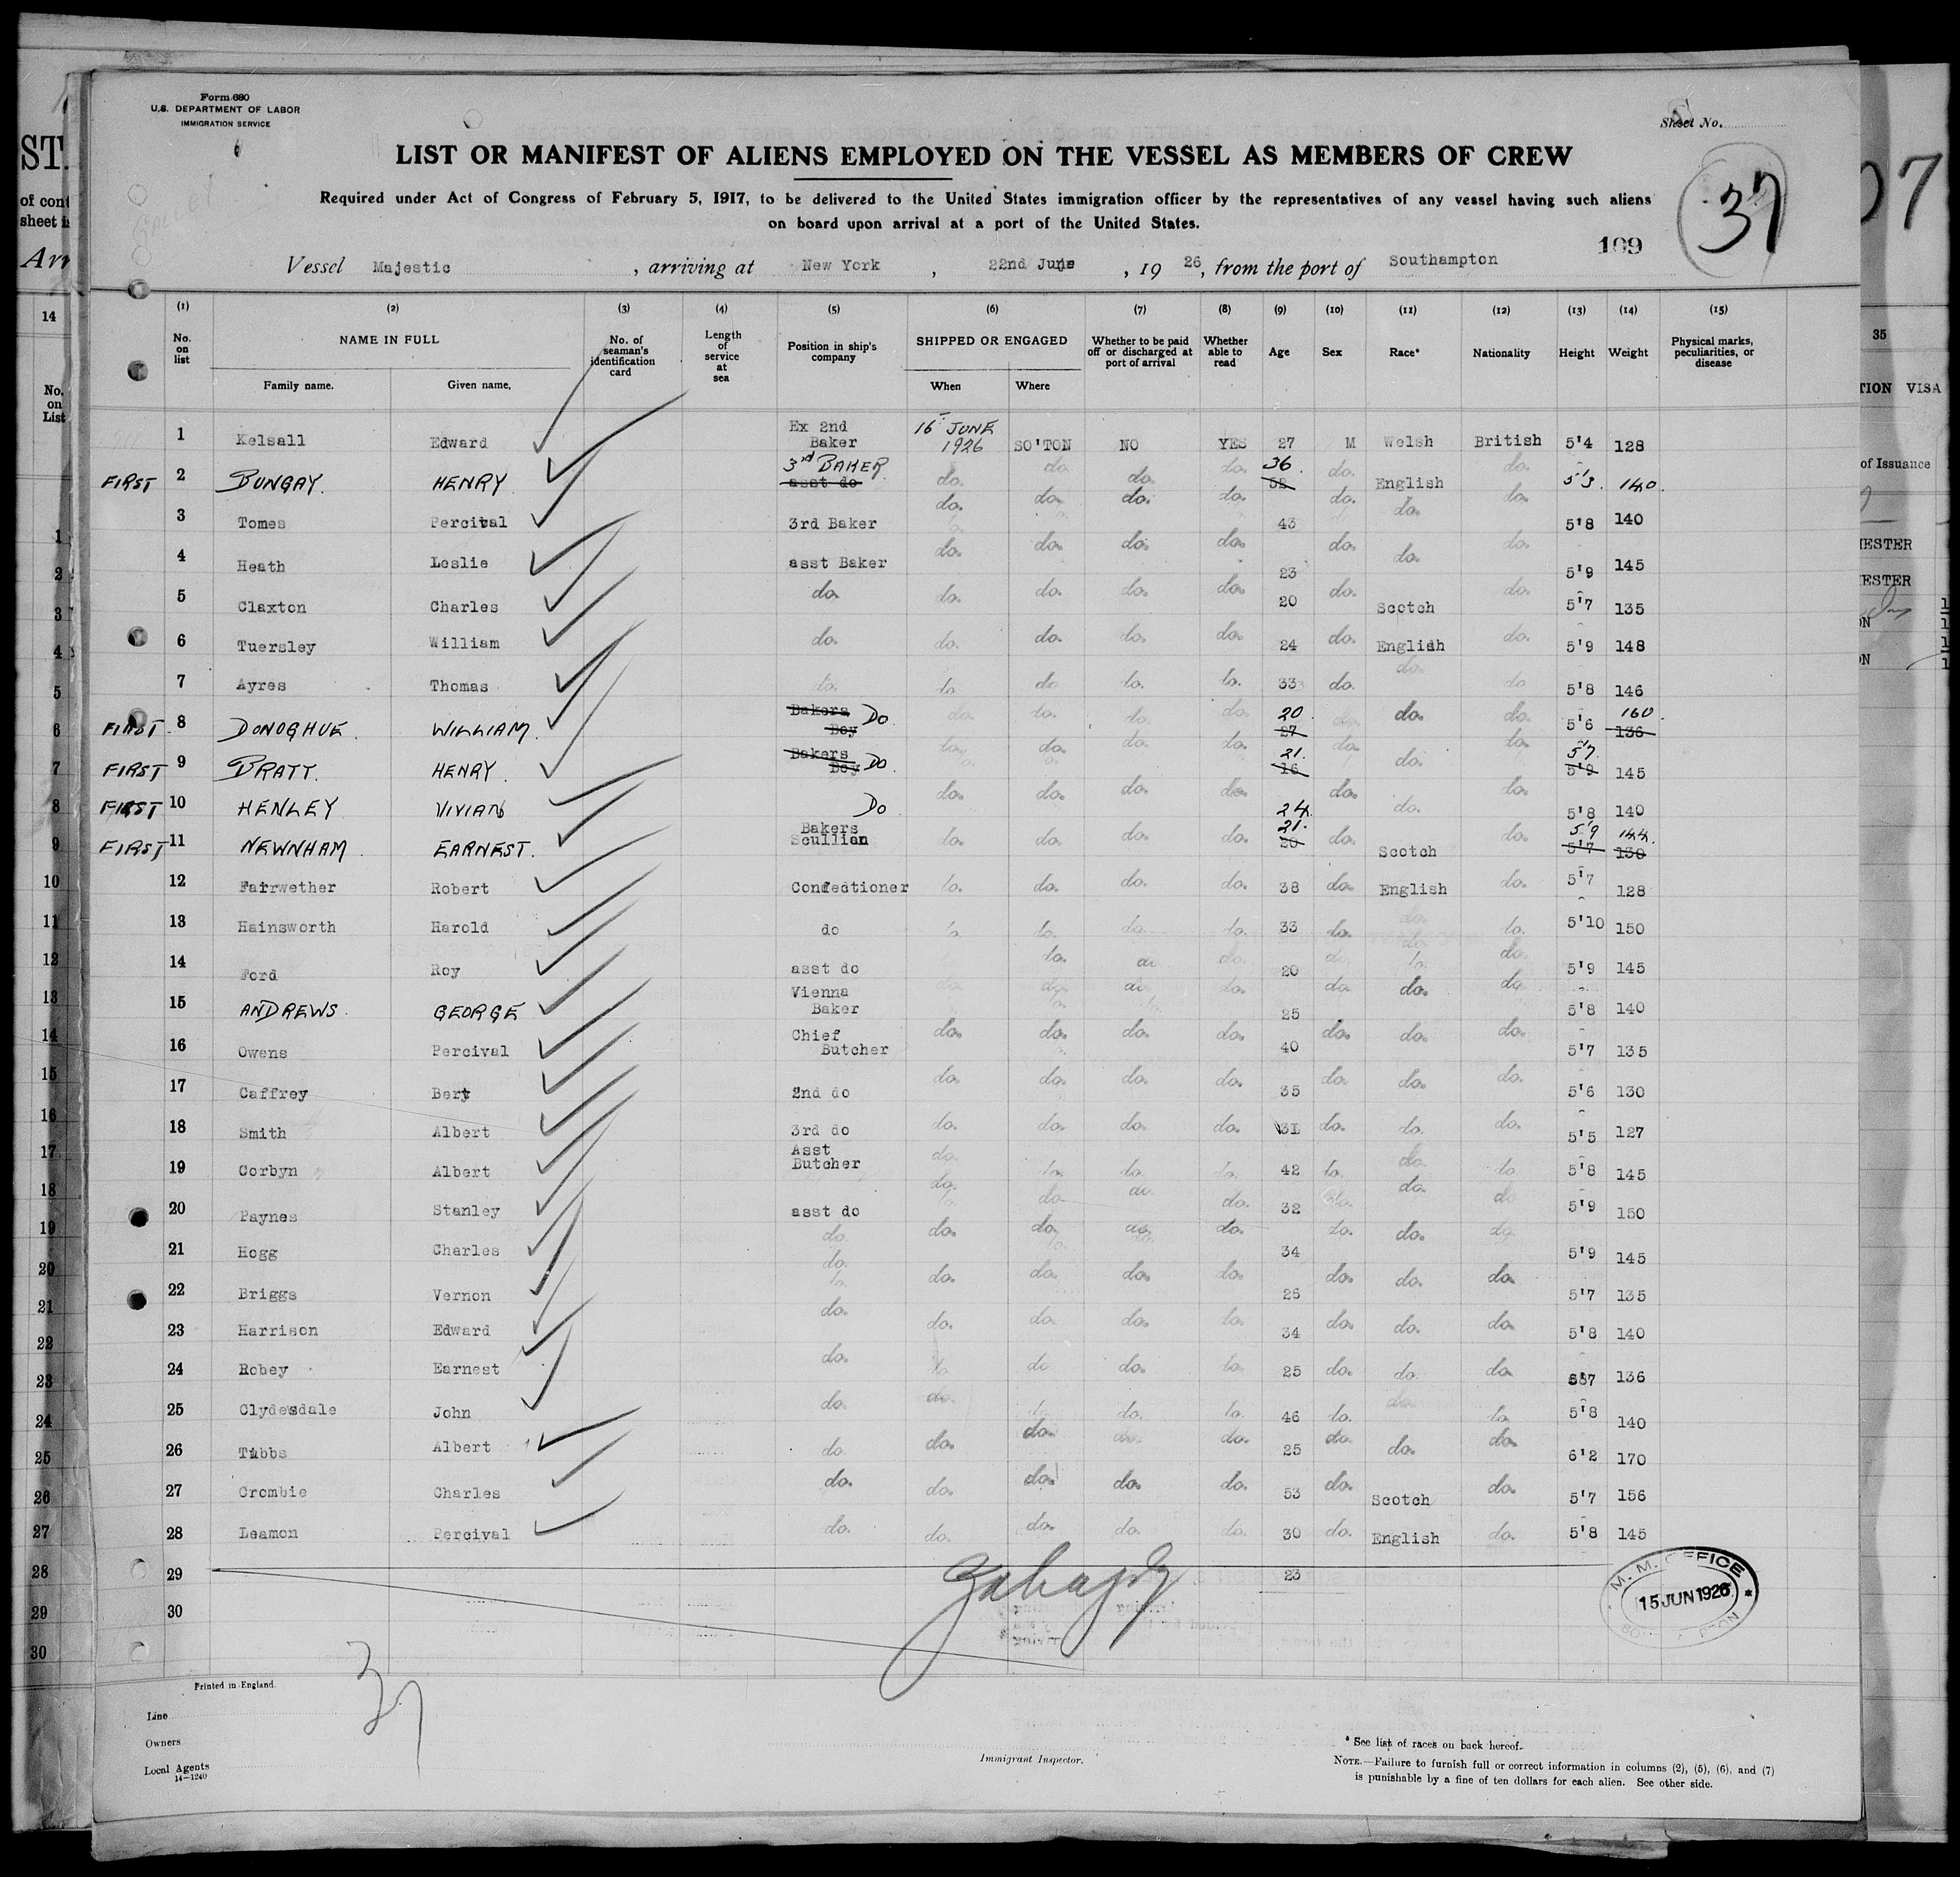 Form 680
U.S. DEPARTMENT OF LABOR
IMMIGRATION SERVICE
Sheet No.
LIST OR MANIFEST OF ALIENS EMPLOYED ON THE VESSEL AS MEMBERS OF CREW
Required under Act of Congress of February 5, 1917, to be delivered to the United States immigration officer by the representatives of any vessel having such aliens
on board upon arrival at a port of the United States.
37
109
Vessel Majestic, arriving at New York, 22nd June, 1926, from the port of Southampton
(1) (2) (3) (4) (5) (6) (7) (8) (9) (10) (11) (12) (13) (14) (15)
No. on list NAME IN FULL Family name. Given name. No. of seaman's identification card Length of service at sea Position in ship's company SHIPPED OR ENGAGED When Where Whether to be paid off or discharged at port of arrival Whether able to read Age Sex Race* Nationality Height Weight Physical marks, peculiarities, or disease
1 Kelsall Edward Ex 2nd Baker 16 JUNE 1926 SO'TON NO YES 27 M Welsh British 5'4 128
FIRST 2 BUNGAY. HENRY. 3rd BAKER asst do do. do. do. do. 36 52 do. English do. 5'3. 140.
3 Tomes Percival 3rd Baker do. do. do. do. 43 do. do. do. 5'8 140
4 Heath Leslie asst Baker do. do. do. do. 23 do. do. do. 5'9 145
5 Claxton Charles do. do. do. do. do. 20 do. Scotch do. 5'7 135
6 Tuersley William do. do. do. do. do. 24 do. English do. 5'9 148
7 Ayres Thomas do. do. do. do. do. 33 do. do. do. 5'8 146
FIRST. 8 DONOGHUE. WILLIAM. Bakers Boy Do do. do. do. do. 20. 27 do. do. do. 5'6 160. 136
FIRST 9 BRATT. HENRY. Bakers Boy Do. do. do. do. do. 21. 16 do. do. do. 5'7. 5'9 145
FIRST 10 HENLEY VIVIAN Do do. do. do. do. 24 do. do. do. 5'8 140
FIRST 11 NEWNHAM. EARNEST. Bakers Scullion do. do. do. do. 21. 20 do. Scotch do. 5'9 5'7 144. 130
12 Fairwether Robert Confectioner do. do. do. do. 38 do. English do. 5'7 128
13 Hainsworth Harold do do. do. do. do. 33 do. do. do. 5'10 150
14 Ford Roy asst do do. do. do. 20 do. do. do. 5'9 145
15 ANDREWS. GEORGE Vienna Baker do. do. do. do. 25 do. do. do. 5'8 140
16 Owens Percival Chief Butcher do. do. do. do. 40 do. do. do. 5'7 135
17 Caffrey Bert 2nd do do. do. do. do. 35 do. do. do. 5'6 130
18 Smith Albert 3rd do do. do. do. do. 31 do. do. do. 5'5 127
19 Corbyn Albert Asst Butcher do. do. do. do. 42 do. do. do. 5'8 145
20 Paynes Stanley asst do do. do. do. do. 32 do. do. do. 5'9 150
21 Hogg Charles do. do. do. do. do. 34 do. do. do. 5'9 145
22 Briggs Vernon do. do. do. do. do. 26 do. do. do. 5'7 135
23 Harrison Edward do. do. do. do. do. 34 do. do. do. 5'8 140
24 Robey Earnest do. do. do. do. do. 25 do. do. do. 5'7 136
25 Clydesdale John do. do. do. do. do. 46 do. do. do. 5'8 140
26 Tibbs Albert do. do. do. do. do. 25 do. do. do. 6'2 170
27 Crombie Charles do. do. do. do. do. 53 do. Scotch do. 5'7 156
28 Leamon Percival do. do. do. do. do. 30 do. English do. 5'8 145
29 23
30
M. M. OFFICE
15 JUN 1926
37
Printed in England.
Line
Owners
Local Agents
14—1240
Immigrant Inspector.
* See list of races on back hereof.
NOTE.—Failure to furnish full or correct information in columns (2), (5), (6), and (7)
is punishable by a fine of ten dollars for each alien. See other side.